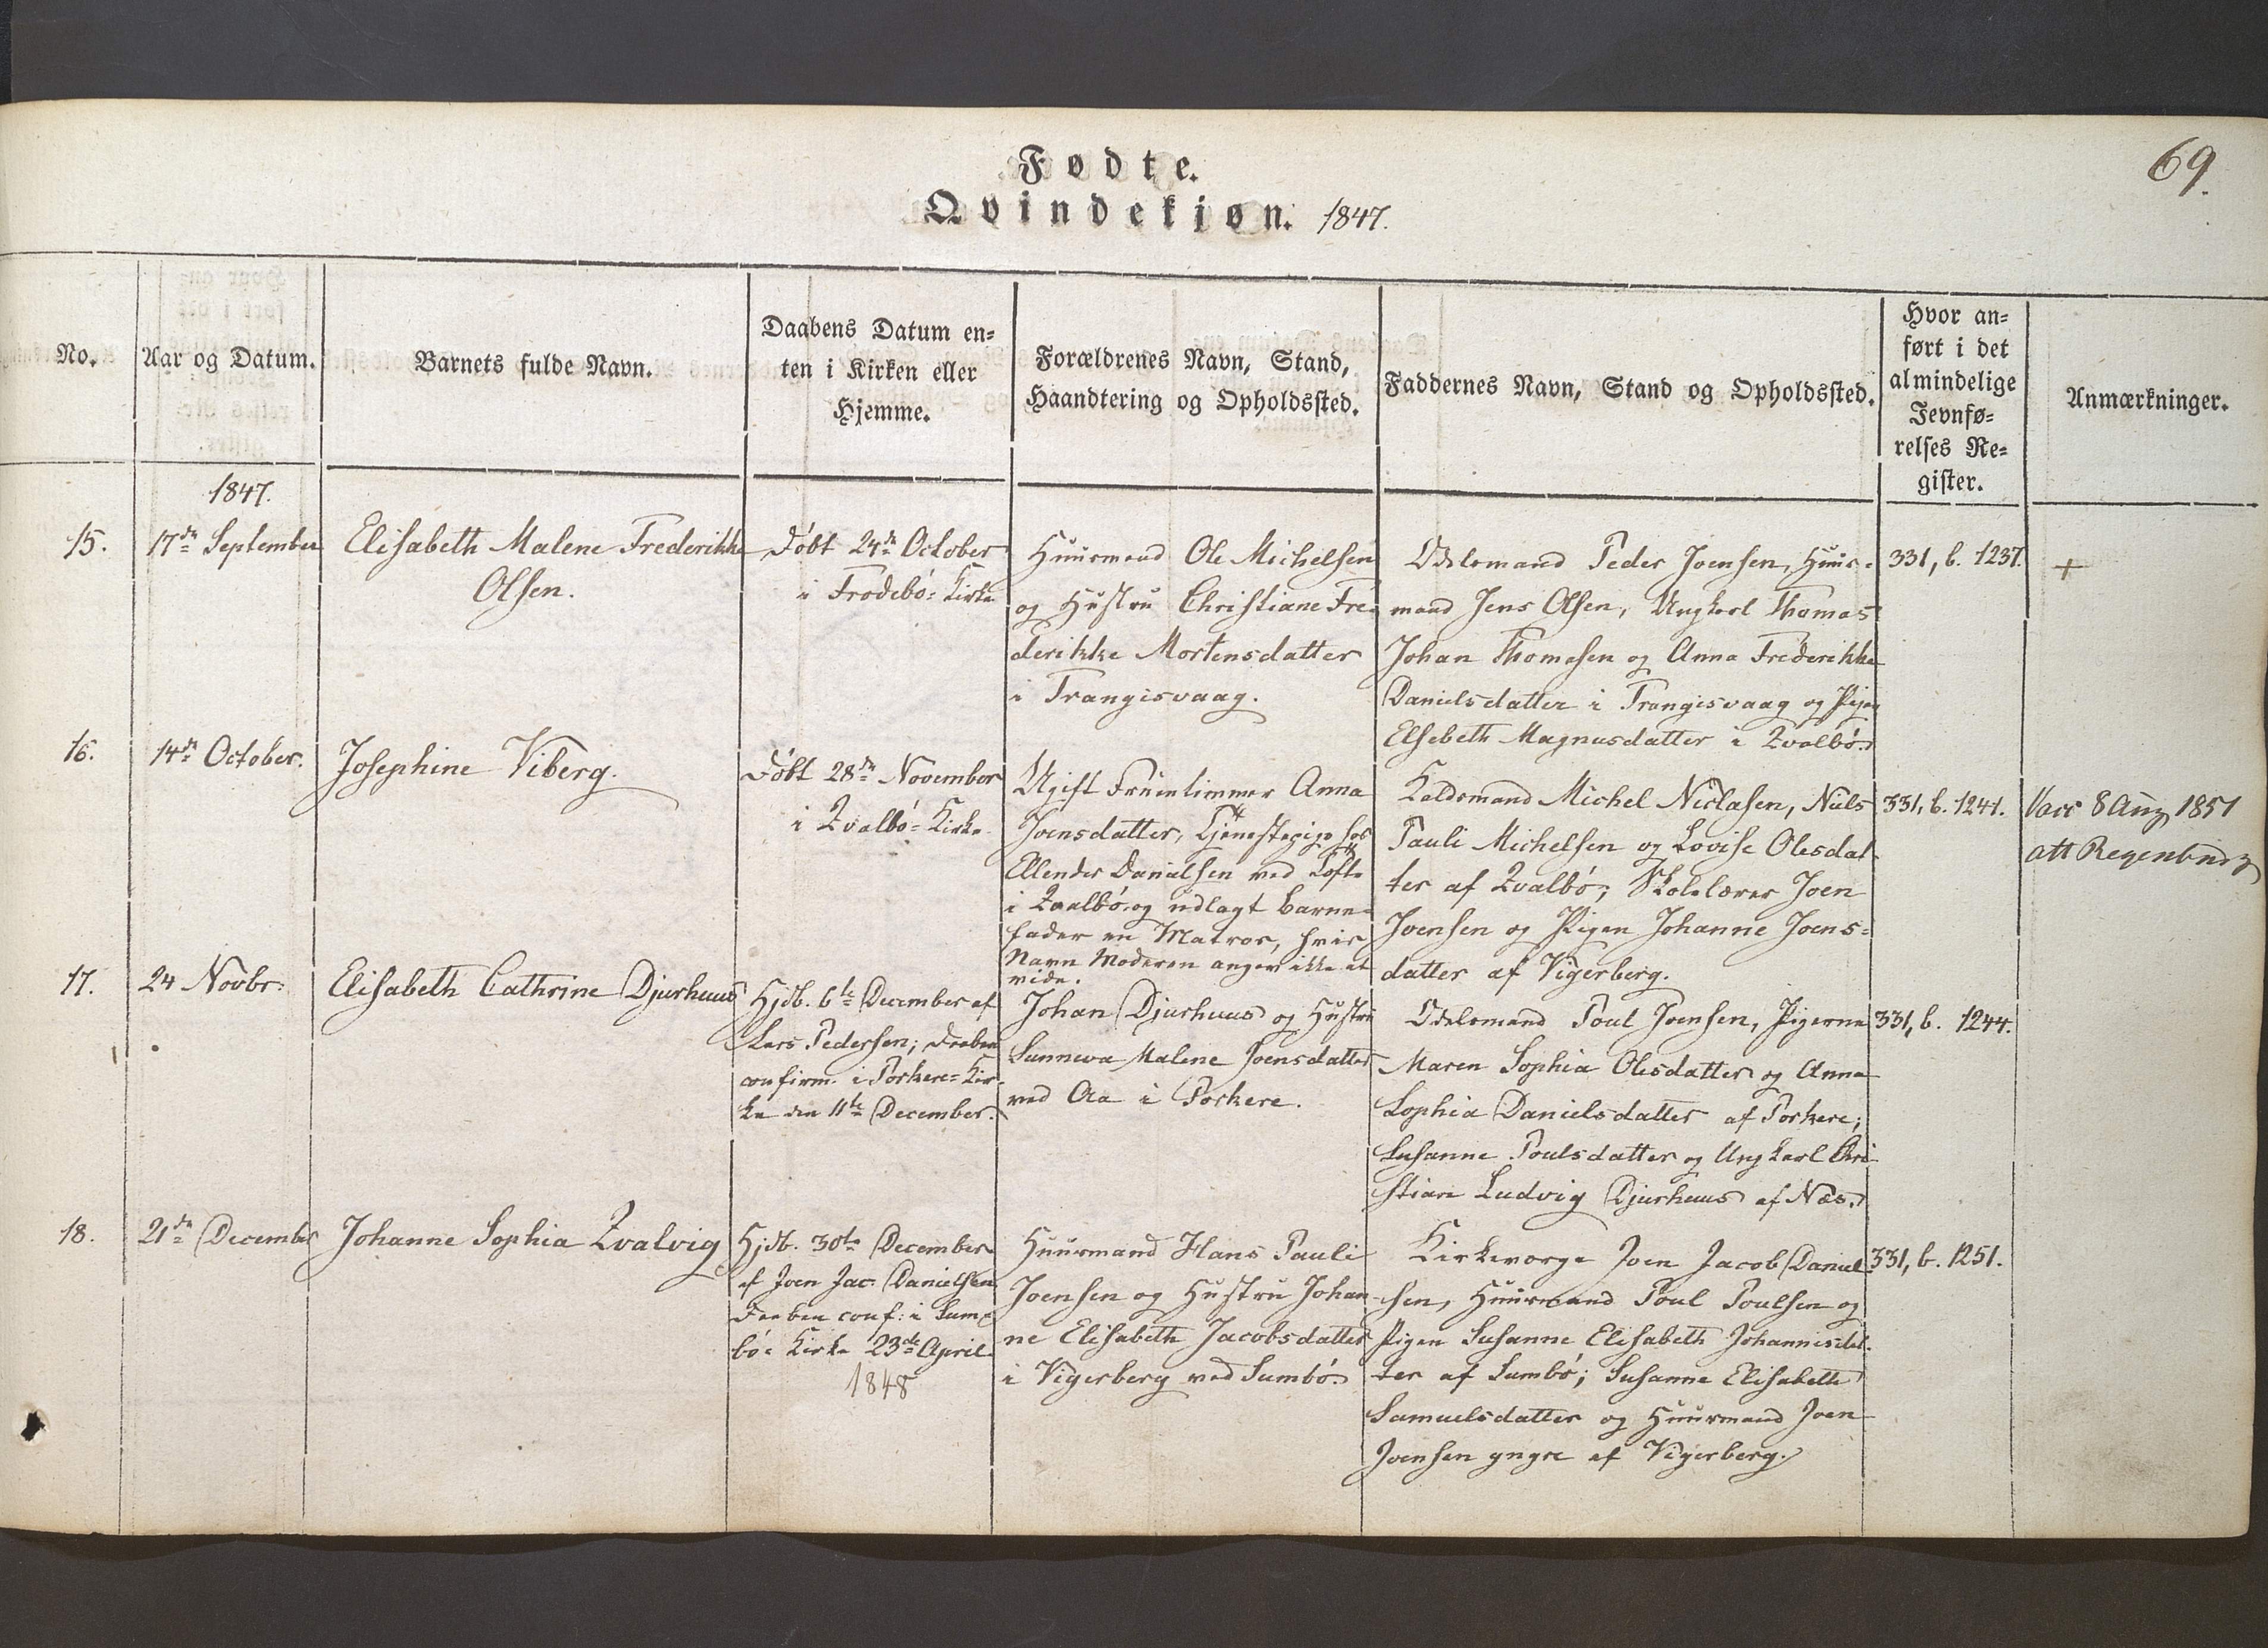 69.
Fødte.
Qvindekjøn. 1847.
No.
Aar og Datum.
Barnets fulde Navn.
Daabens Datum en-
ten i Kirken eller
Hjemme.
Forældrenes Navn, Stand,
Haandtering og Opholdssted.
Faddernes Navn, Stand og Opholdssted.
Hvor an-
ført i det
almindelige
Jevnfø-
relses Re-
gister.
Anmærkninger.
1847.
15.
17de September
Elisabeth Malene Frederikke
Olsen.
Døbt 24de October
i Frodebø-Kirke
Huusmand Ole Michelsen
og Hustru Christiane Fre-
derikke Mortensdatter
i Trangisvaag.
Odelsmand Peder Joensen, Huus-
mand Jens Olsen, Ungkarl Thomas
Johan Thomasen og Anna Frederikke
Danielsdatter i Trangisvaag og Pigen
Elsebeth Magnusdatter i Qvalbø.
331, b. 1237.
+
16.
14de October.
Josephine Viberg.
Døbt 28de November
i Qvalbø-Kirke
Ugift Fruentimmer Anna
Joensdatter, Tjenestepige hos
Ellender Danielsen ved Toft
i Qvalbø og udlagt Barne-
fader en Matros, hvis
Navn Moderen angav ikke at
vide.
Michel Niclasen, Niels
Pauli Michelsen og Lovise Olesdat-
ter af Qvalbø; Skolelærer Joen
Joensen og Pigen Johanne Joens-
datter af Vigerberg.
331, b. 1241.
Vacc 8 Aug 1851
att Regenburg
17.
24 Novbr.
Elisabeth Cathrine Djurhuus
Hjdb. 6te December af
Lars Pedersen; Daaben
confirm. i Porkere-Kir-
ke den 11te December.
Johan Djurhuus og Hustru
Sunneva Malene Joensdatter
ved Aa i Porkere.
Odelsmand Poul Joensen, Pigerne
Maren Sophia Olesdatter og Anna
Sophia Danielsdatter af Porkere;
Susanne Poulsdatter og Ungkarl Chri-
stian Ludvig Djurhuus af Næs.
331, b. 1244.
18.
21de December
Johanne Sophia Qvalvig
Hjdb. 30te December
af Joen Jac. Danielsen
Daaben conf. i Sum-
bø-Kirke 23de April
1848
Huusmand Hans Pauli
Joensen og Hustru Johan-
ne Elisabeth Jacobsdatter
i Vigerberg ved Sumbø.
Kirkeværge Joen Jacob Daniel-
sen, Huusmand Poul Poulsen og
Pigen Susanne Elisabeth Johannisdat-
ter af Sumbø; Susanne Elisabeth
Samuelsdatter og Huusmand Joen
Joensen yngre af Vigerberg.
331, b. 1251.